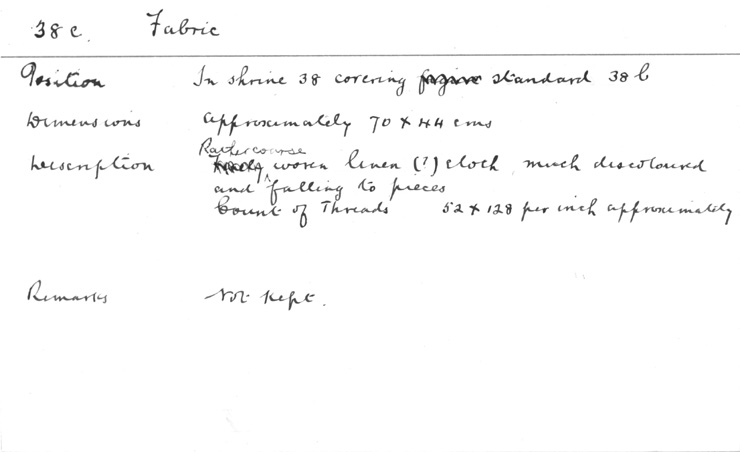 38 c. Fabric
Position In shrine 38 covering standard 38 b
Dimensions approximately 70 x 44 cms
Rather coarse
Description woven linen (?) cloth, much discoloured
and falling to pieces
Count of Threads 52 x 128 per inch approximately
Remarks Not kept.